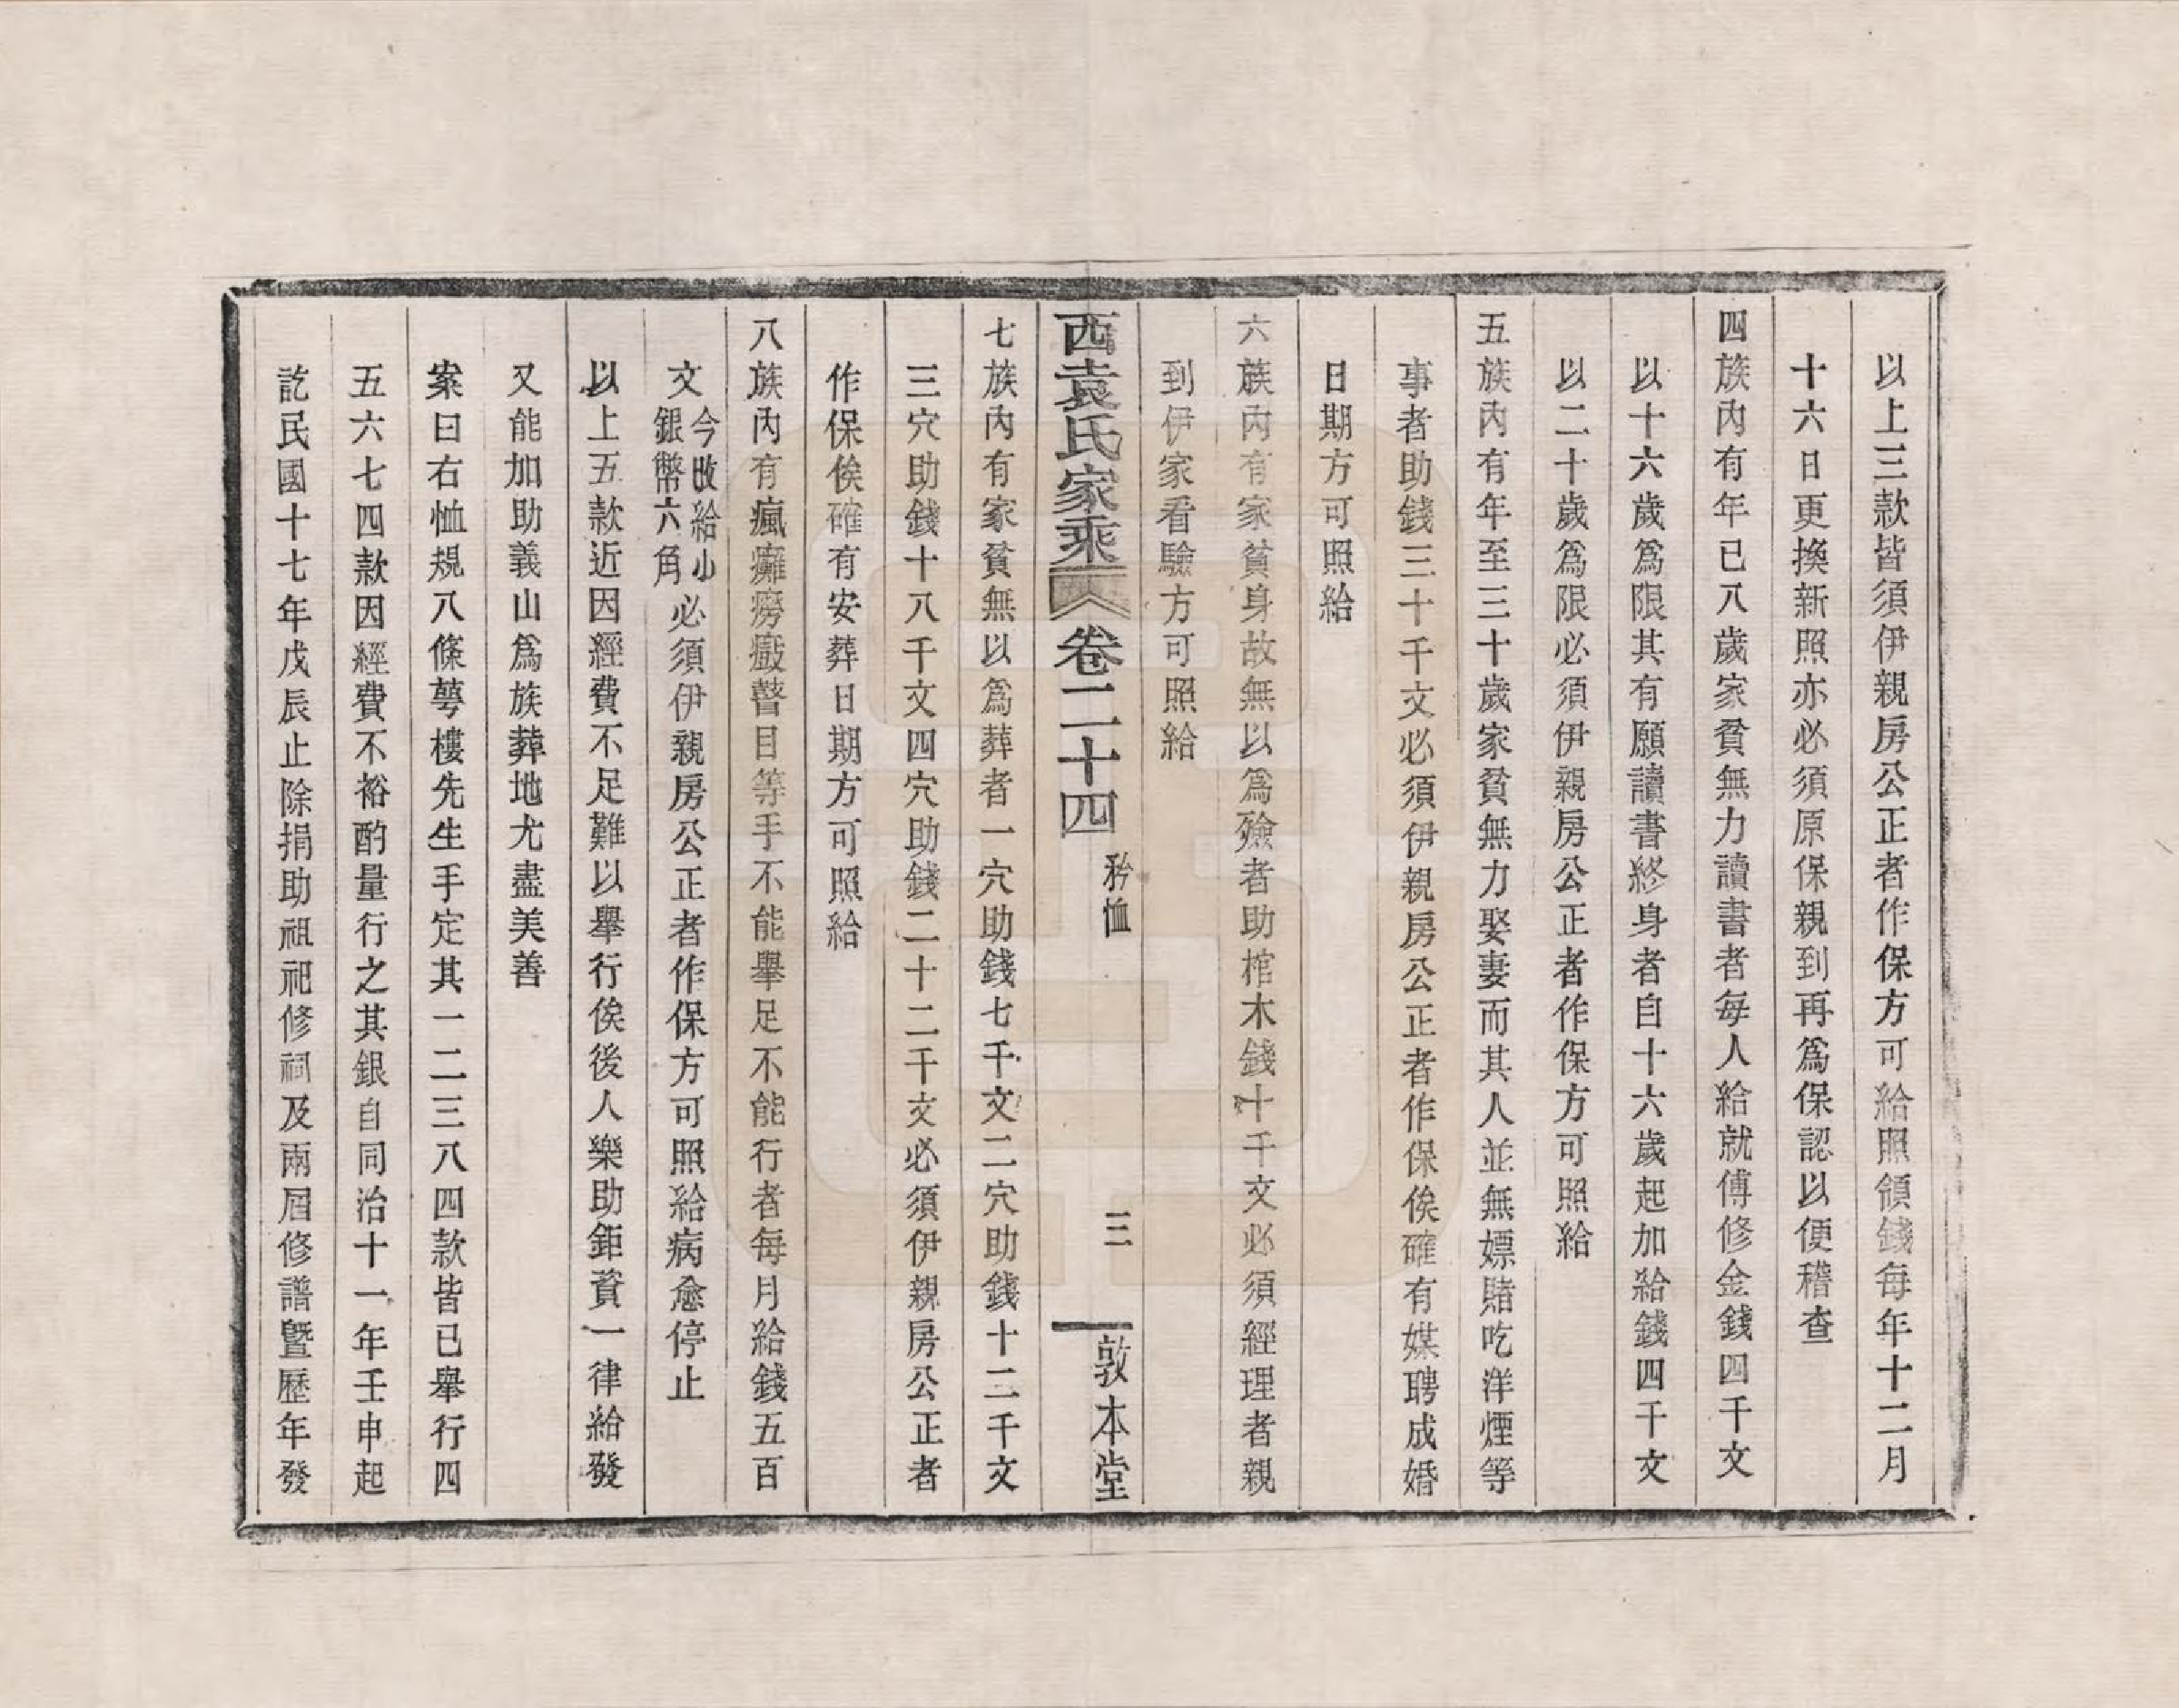 以上三款皆須伊親房公正者作保方可給照領錢每年十二月
十六日更換新照亦必須原保親到再爲保認以便稽查
四族內有年已八歲家貧無力讀書者每人給就傅修金錢四千文
以十六歲爲限其有願讀書終身者自十六歲起加給錢四千文
以二十歲爲限必須伊親房公正者作保方可照給
五族內有年至三十歲家貧無力娶妻而其人並無嫖賭吃洋煙等
事者助錢三十千文必須伊親房公正者作保俟確有媒聘成婚
日期方可照給
六族內有家貧身故無以爲殮者助棺木錢十千文必須經理者親
到伊家看驗方可照給
西袁氏家乘 卷二十四 矜恤 三 敦本堂
七族內有家貧無以爲葬者一穴助錢七千文二穴助錢十二千文
三穴助錢十八千文四穴助錢二十二千文必須伊親房公正者
作保俟確有安葬日期方可照給
八族內有瘋癱癆癡瞽目等手不能舉足不能行者每月給錢五百
文今改給小銀幣六角必須伊親房公正者作保方可照給病愈停止
以上五款近因經費不足難以舉行俟後人樂助鉅資一律給發
又能加助義山爲族葬地尤盡美善
案曰右恤規八條萼樓先生手定其一二三八四款皆已舉行四
五六七四款因經費不裕酌量行之其銀自同治十一年壬申起
訖民國十七年戊辰止除捐助祖祀修祠及兩屆修譜曁歷年發